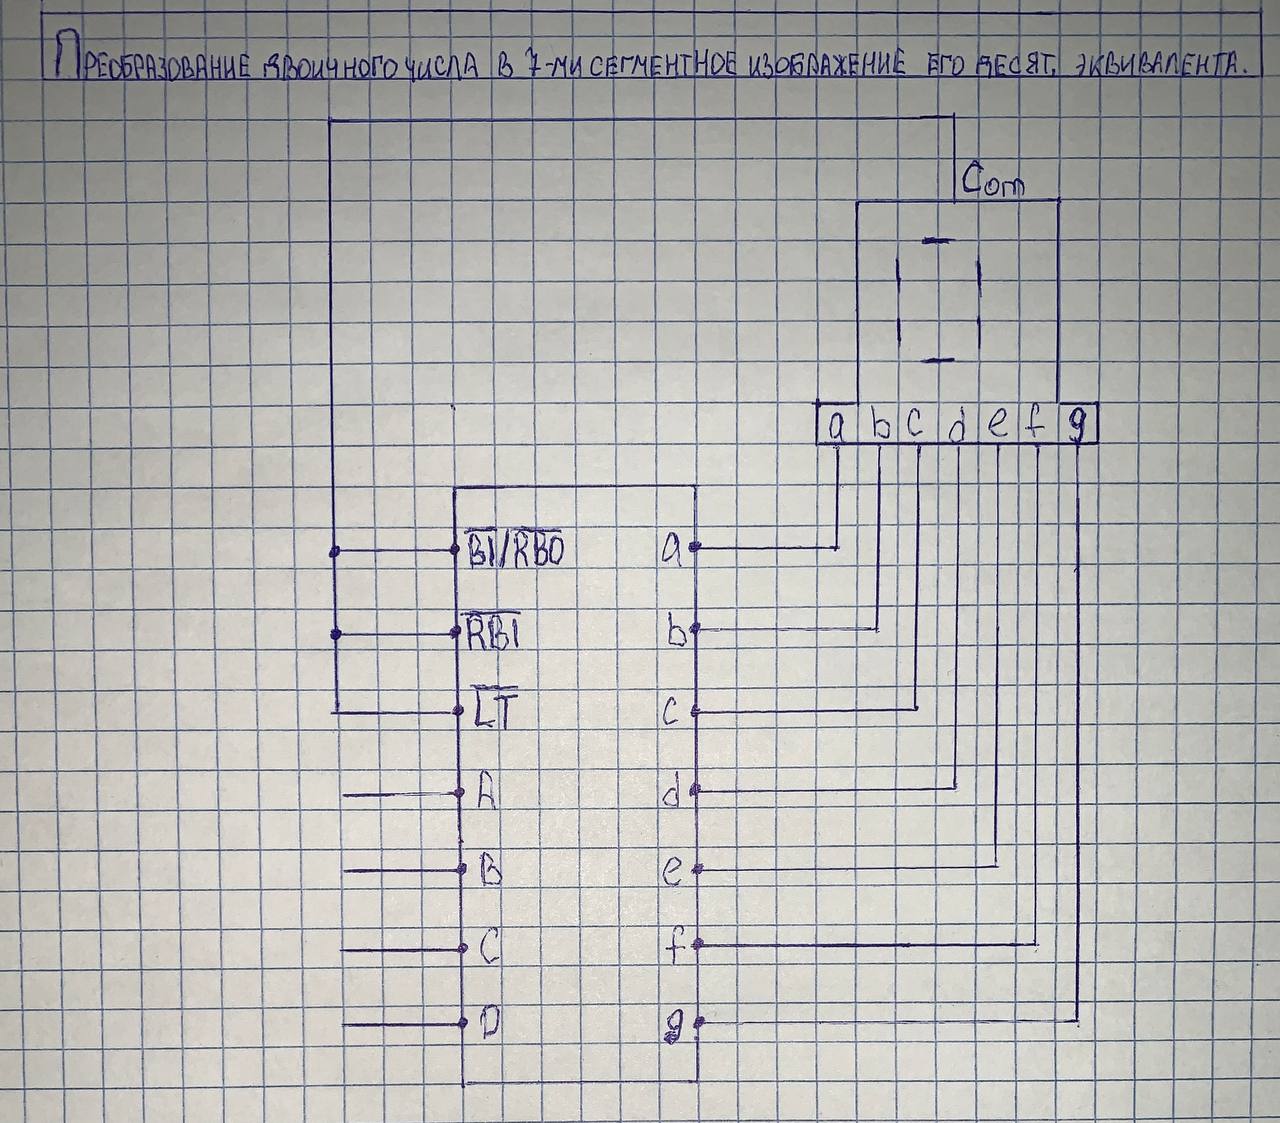 ПРЕОБРАЗОВАНИЕ ДВОИЧНОГО ЧИСЛА В 7-МИ СЕГМЕНТНОЕ ИЗОБРАЖЕНИЕ ЕГО ДЕСЯТ. ЭКВИВАЛЕНТА.
Com
a b c d e f g
B̅I̅/R̅B̅O̅ a
R̅B̅I̅ b
L̅T̅ c
A d
B e
C f
D g